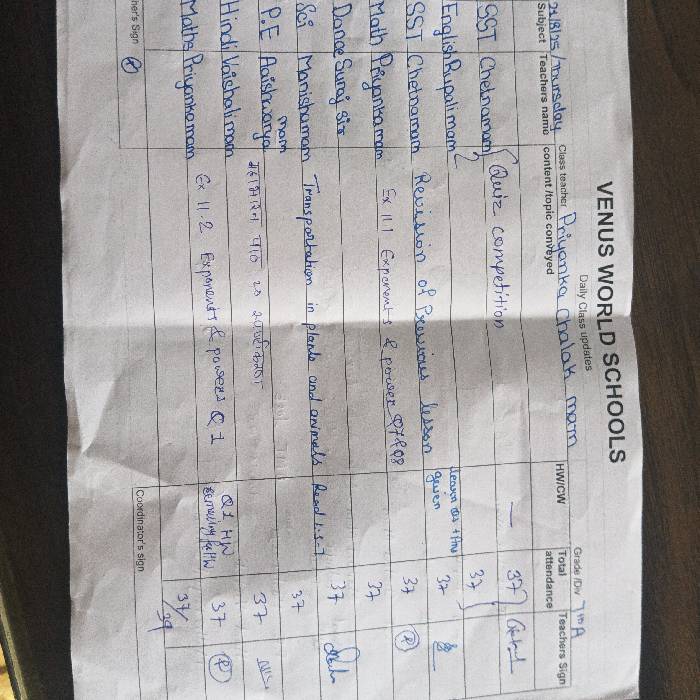 VENUS WORLD SCHOOLS
Daily Class updates
/8/25/Thursday Class teacher Priyanka Chalak mam Grade /Div 7th A
Subject Teachers name content/topic conveyed HW/CW Total attendance Teachers Sign
SST Chetnamam Quiz competition — 37
English Rupali mam 37
SST Chetnamam Revision of Previous lesson learn given 37
Math Priyanka mam Ex 11.1 Exponents & power Q7 & Q8 37
Dance Suraj sir 37
Sci Manisha mam Transportation in plants and animals Read 37
P.E Aaishwarya mam 37
Hindi Vaishali mam पाठ 37
Maths Priyanka mam Ex 11.2 Exponents & powers Q1 Q1 HW 37
37/
her's Sign Coordinator's sign